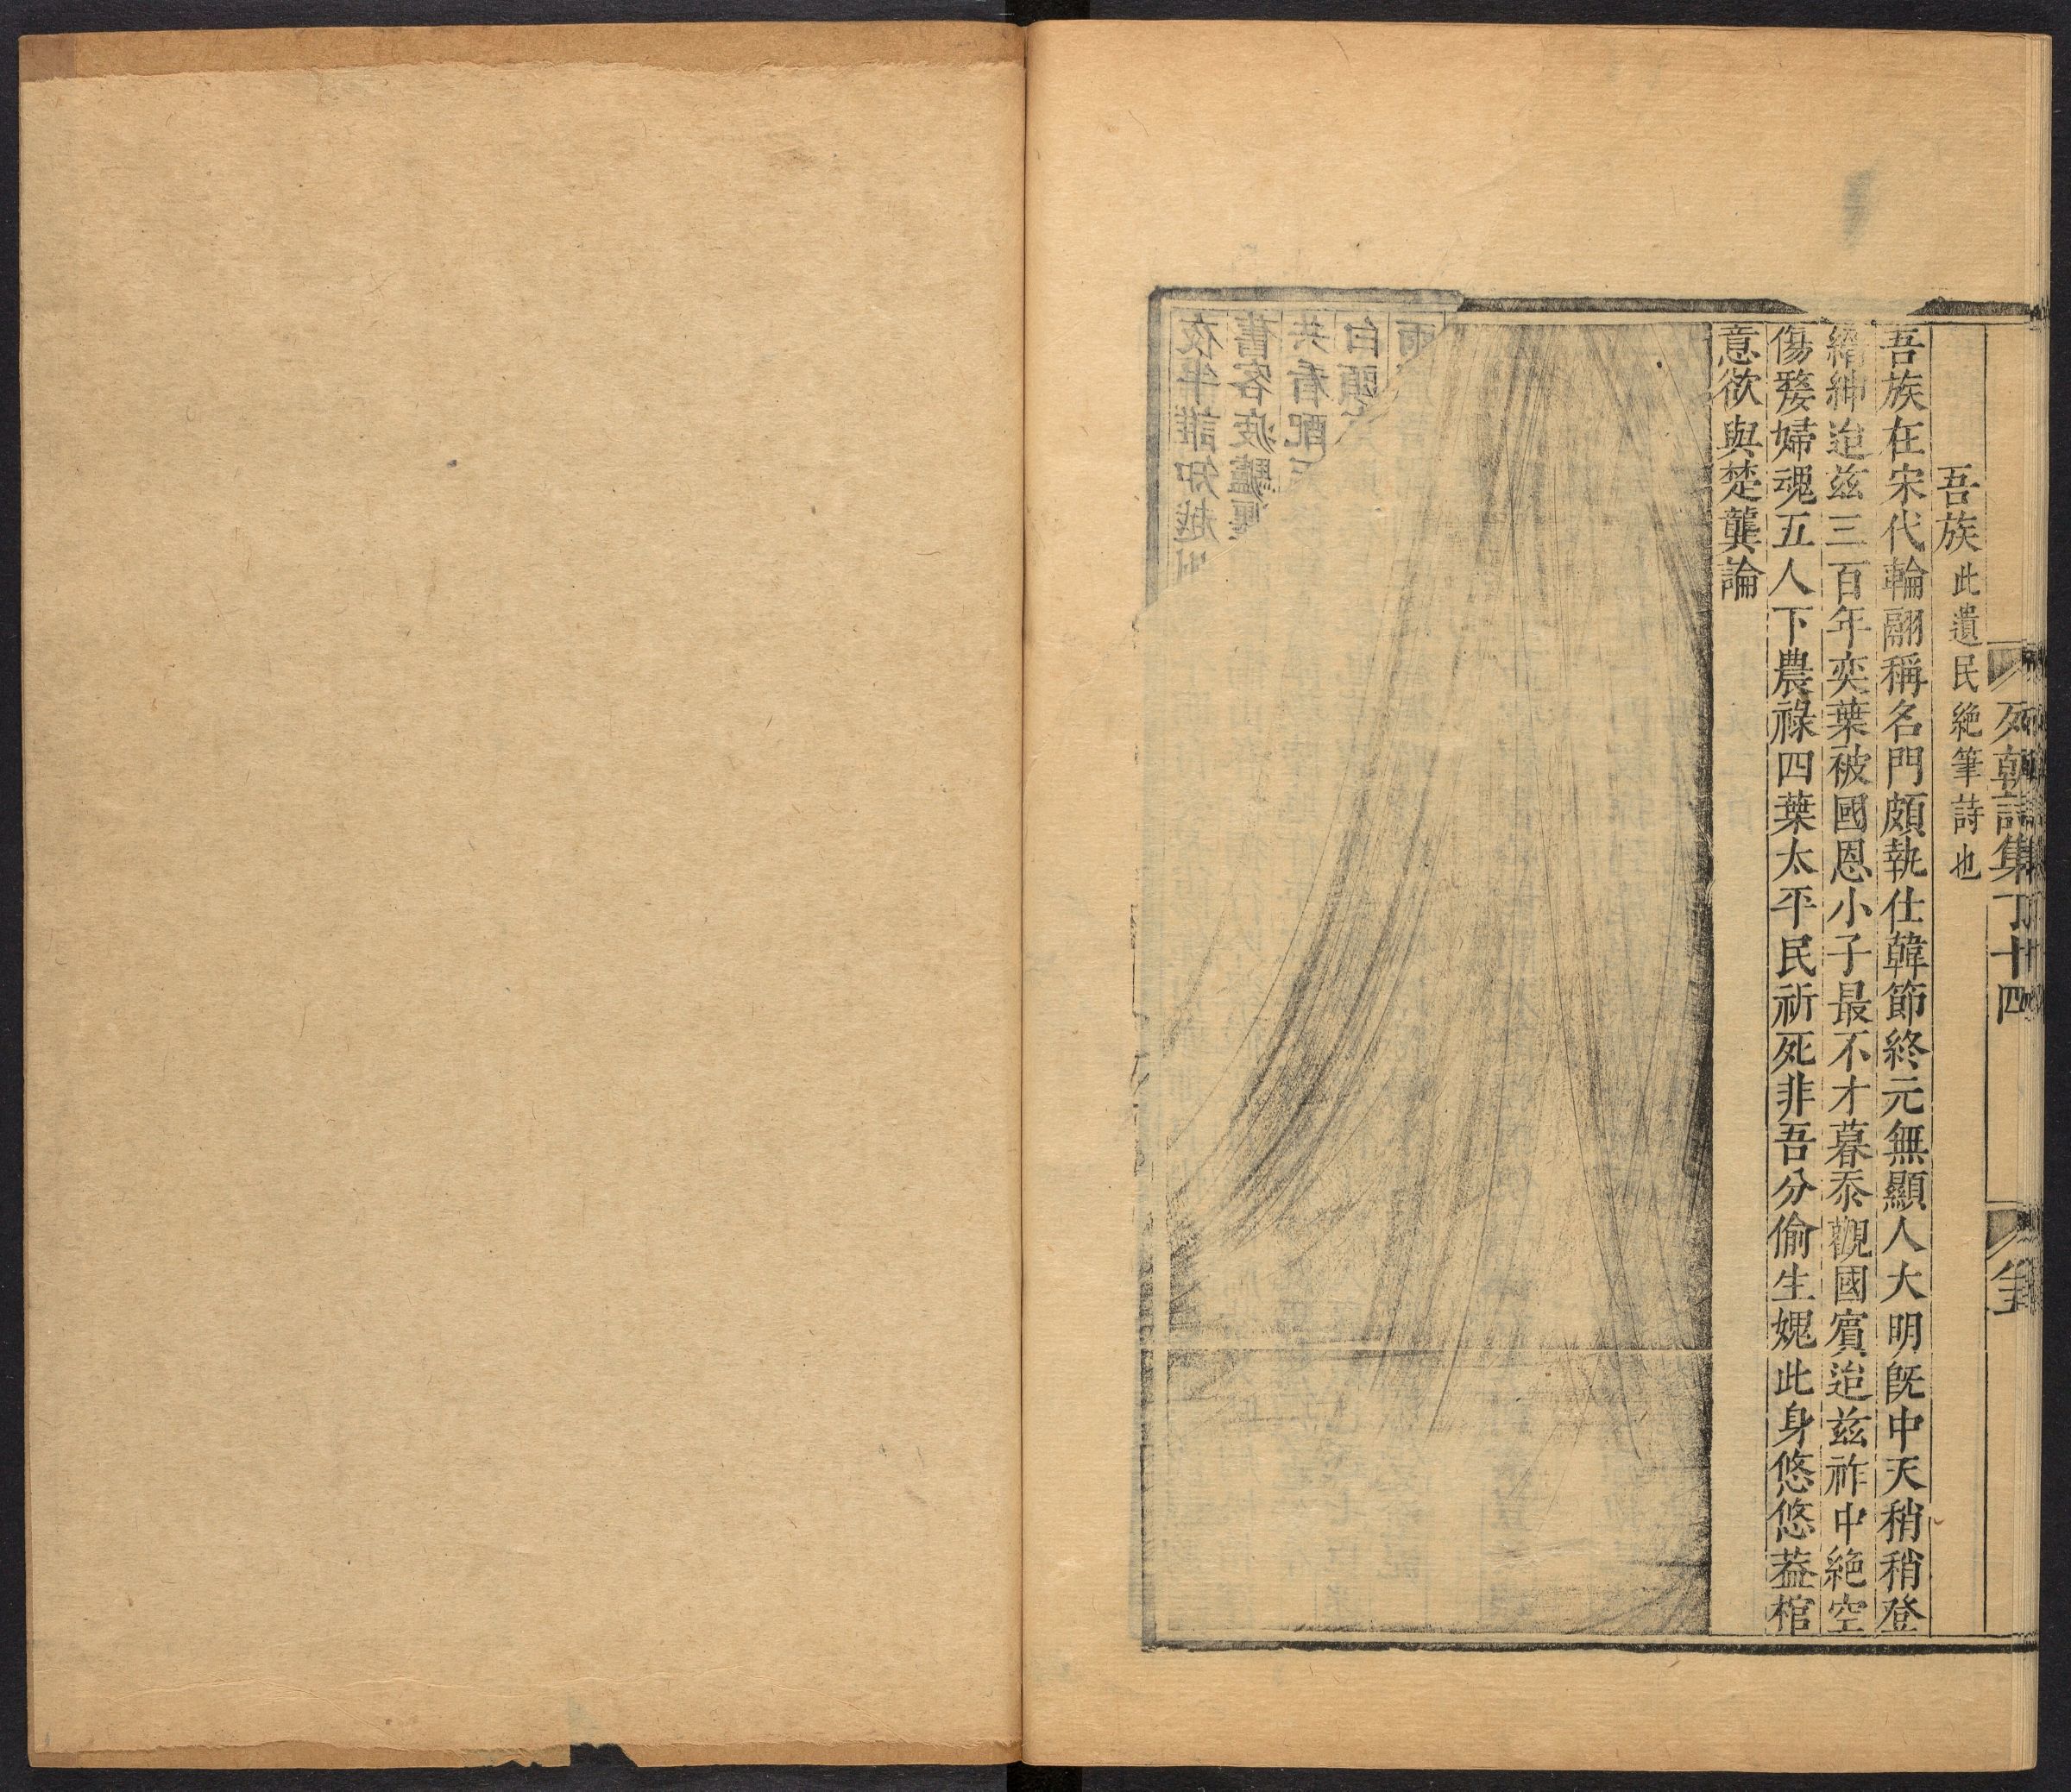 列朝詩集丁十四
吾族此遺民絶筆詩也
吾族在宋代輪翮稱名門頗執仕韓節終元無顯人大明旣中天稍稍登
縉紳迨兹三百年奕葉被國恩小子最不才暮忝觀國賓迨兹祚中絶空
傷嫠婦魂五人下農祿四葉太平民祈死非吾分偷生媿此身悠悠葢棺
意欲與楚龔論
白頭
共看配
舊客疲驢
夜半誰知越